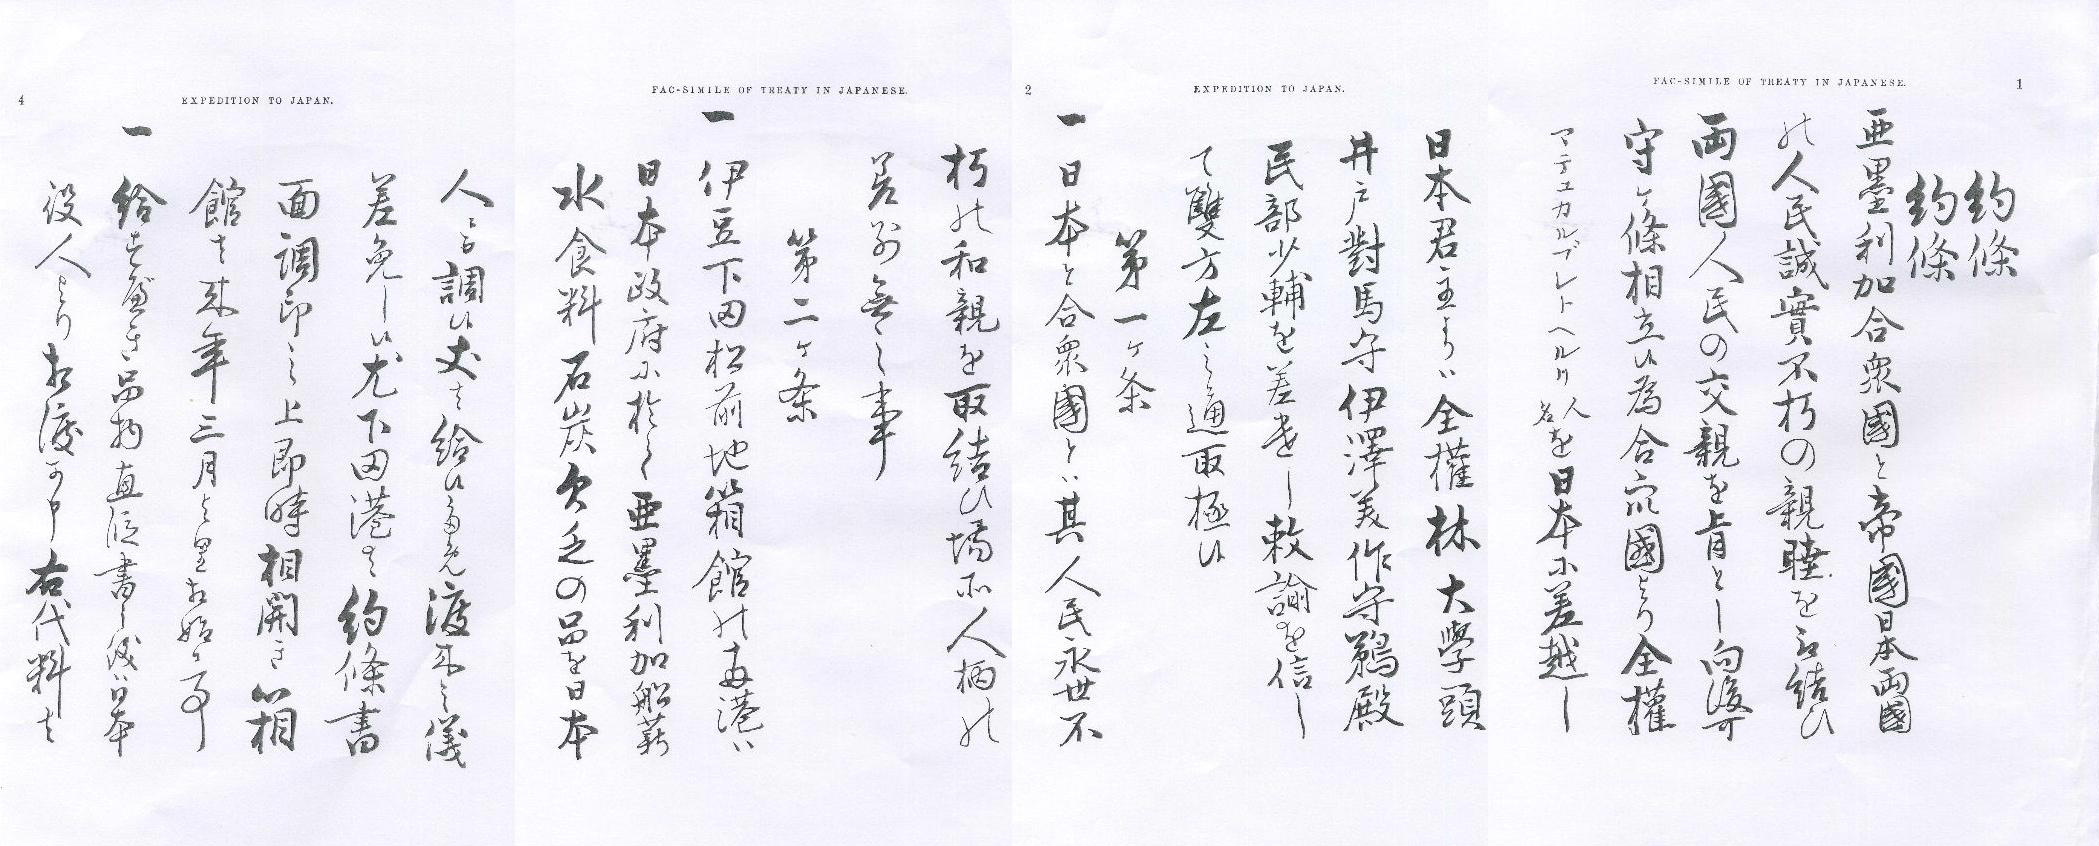 FAC-SIMILE OF TREATY IN JAPANESE. 1
約條
約條
亜墨利加合衆國と帝國日本両國
の人民誠實不朽の親睦を取結ひ
両國人民の交親を旨とし向後可
守ケ條相立候為合衆國より全權
マテユカルブレトヘルリ人名を日本に差越し
2 EXPEDITION TO JAPAN.
日本君主よりハ全權林大學頭
井戸對馬守伊澤美作守鵜殿
民部少輔を差遣し敕諭を信し
て雙方左之通取極候
第一ケ条
一 日本と合衆國とハ其人民永世不
FAC-SIMILE OF TREATY IN JAPANESE.
朽の和親を取結ひ場所人柄の
差別無之事
第二ケ条
一 伊豆下田松前地箱館の両港ハ
日本政府に於て亜墨利加船薪
水食料石炭欠乏の品を日本
4 EXPEDITION TO JAPAN.
人にて調候丈は給候為め渡来之儀
差免し候尤下田港は約條書
面調印之上即時相開き箱
館は来年三月より相始候事
一 給すへき品物直段書之儀ハ日本
役人より相渡可申右代料は